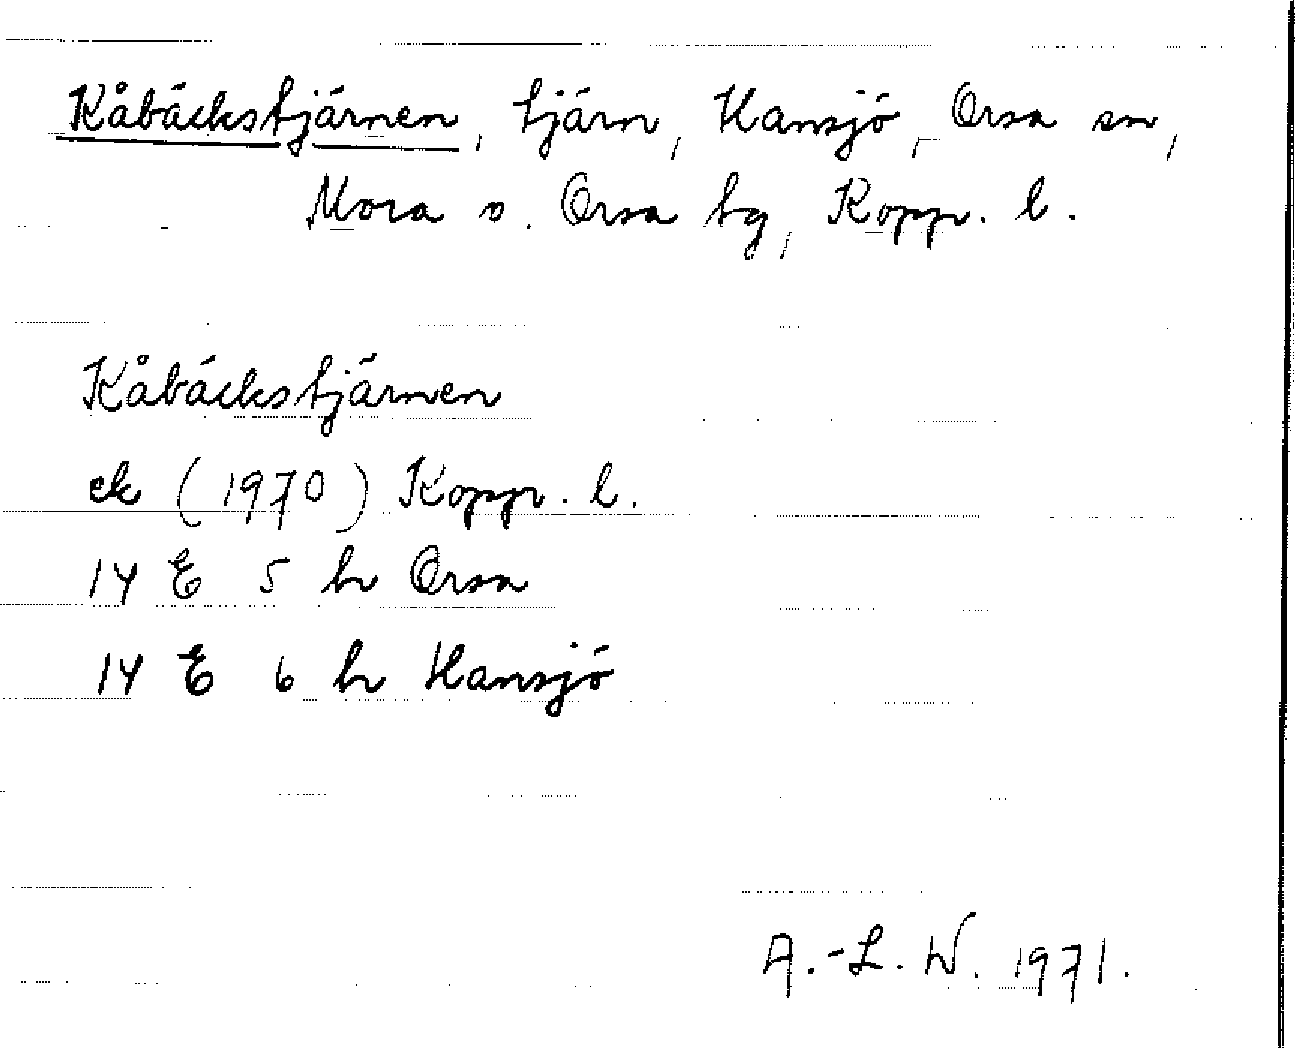 Kåbäckstjärnen, tjärn, Hansjö, Orsa sn,
Mora o. Orsa tg, Kopp. l.
Kåbäckstjärnen
ek (1970) Kopp. l.
14 E 5 h Orsa
14 E 6 h Hansjö
A.-L. W. 1971.